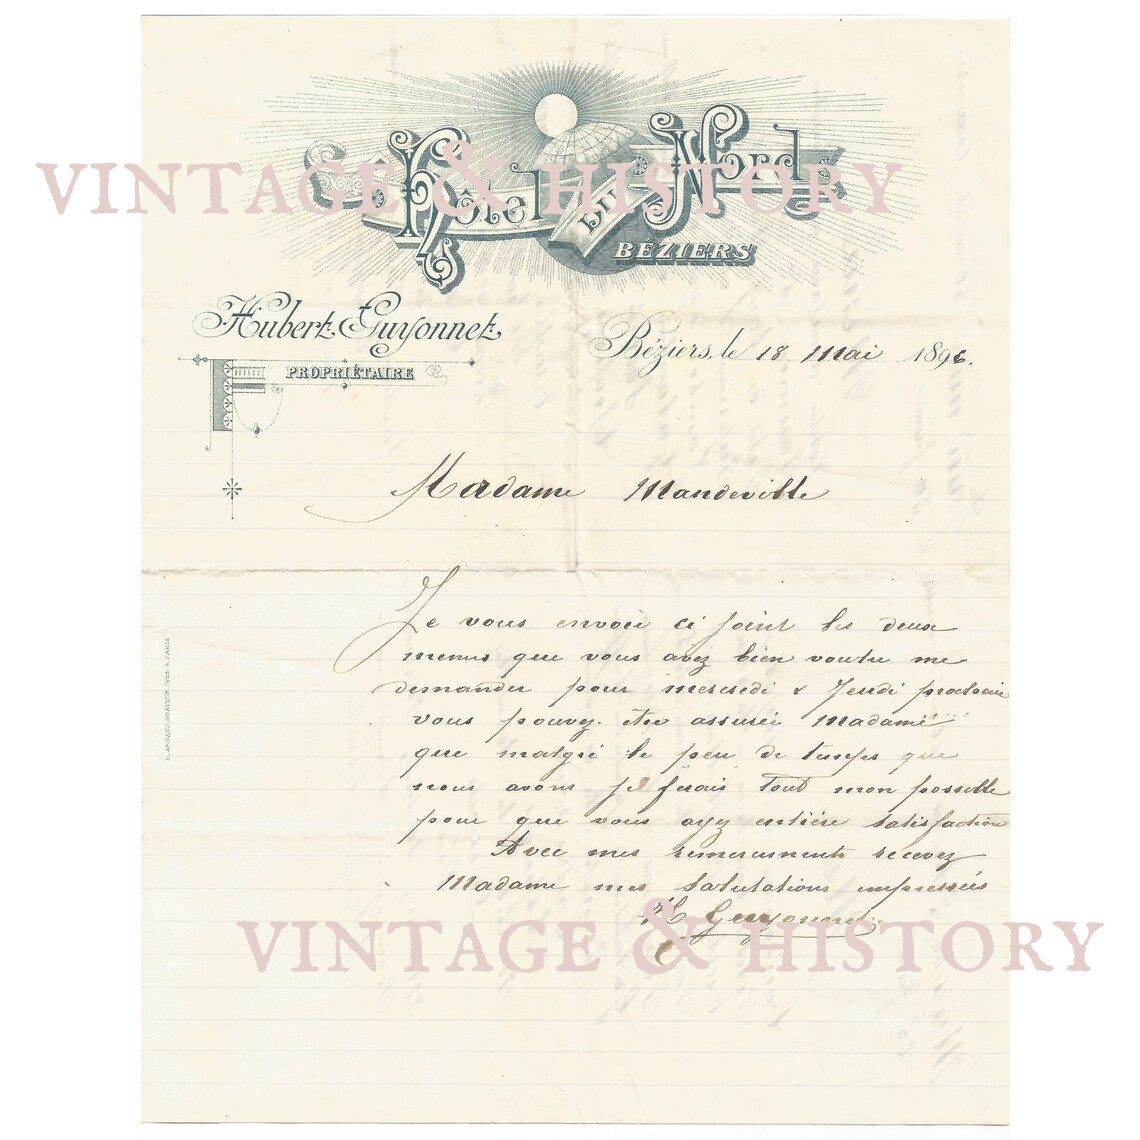 Hôtel DU Nord
BÉZIERS
VINTAGE & HISTORY
Hubert Guyonnet
PROPRIÉTAIRE
Béziers, le 18 Mai 1896.
Madame Mandeville
Je vous envoie ci joint les deux
menus que vous avez bien voulu me
demander pour mercredi & Jeudi prochain
vous pouvez être assurée Madame
que malgré le peu de temps que
nous avons je ferais tout mon possible
pour que vous ayez entière satisfaction
Avec mes remerciements recevez
Madame mes salutations empressées
H Guyonnet
VINTAGE & HISTORY